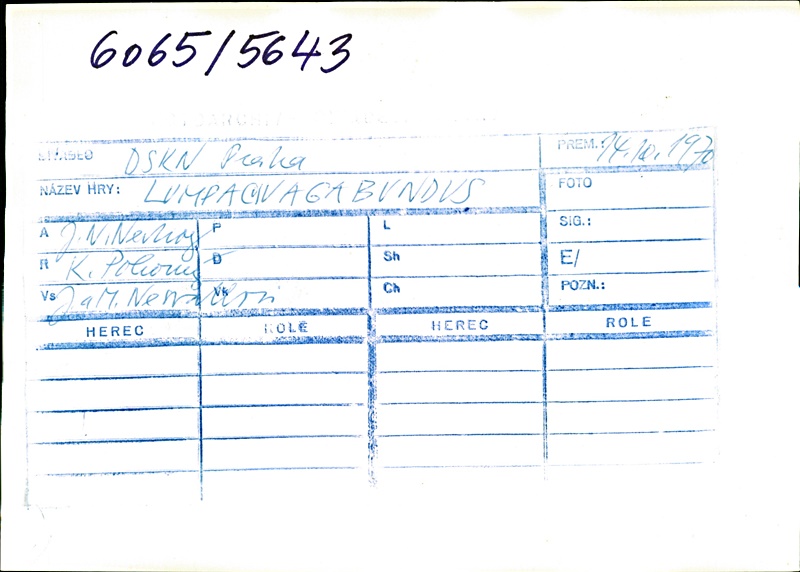 6065/5643
DSKN Praha PREM.: 14.10.1970
NÁZEV HRY: LUMPACIVAGABUNDUS FOTO
A J.N. Nestroy P L SIG.:
R K. Pokorný D Sh E/
Vs J a M. Vh Ch POZN.:
HEREC ROLE HEREC ROLE